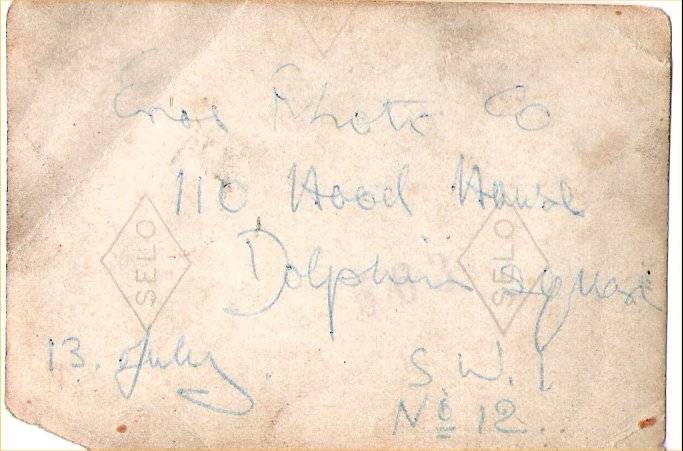 Eros Photo Co
110 Hood House
SELO
SELO
Dolphin Square
13. July.
S.W.1
No 12.